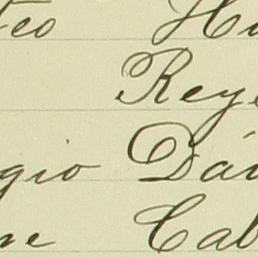 teo Hu
Reye
gio Dáv
ne Cab